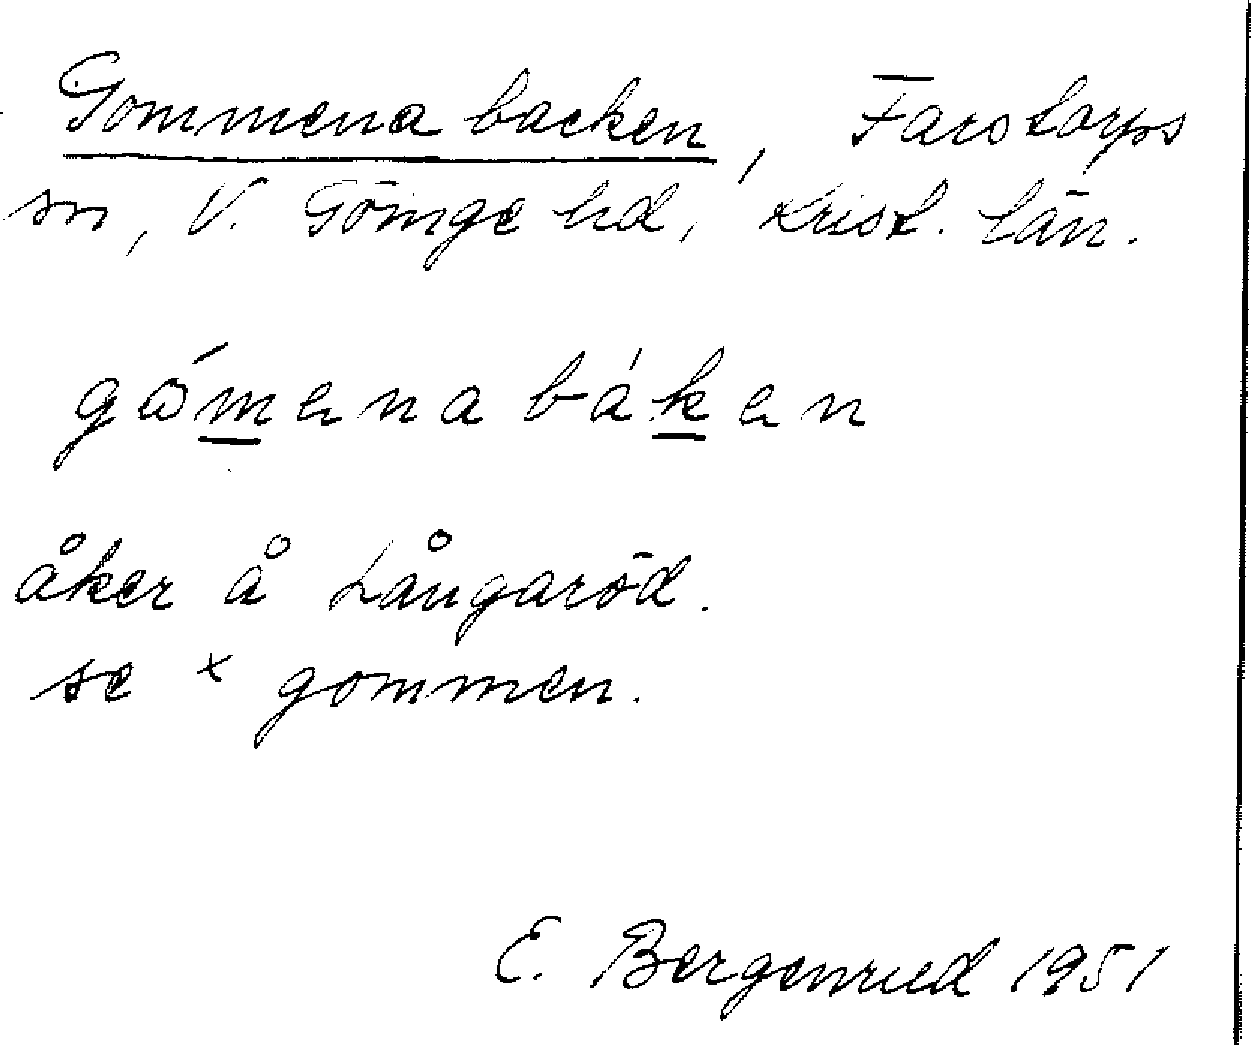 Gommena backen, Farstorps
sn, V. Göinge hd, Krist. län.
gώmena báken
åker å Långaröd.
se × gommen.
E. Bergenrud 1951